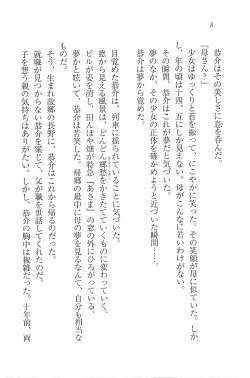 8
恭介はその美しさに息を呑んだ。
「母さん？」
少女はゆっくりと首を振って、にこやかに笑った。その笑顔が母に似ていた。しか
し、年の頃は十四、五にしか見えない。母がこんなに若いわけがない。
その瞬間、恭介はこれが夢だと気づいた。
夢のなかで、その少女の正体を確かめようとした瞬間……
恭介は夢から覚めた。
目覚めた恭介は、列車に揺られていることに気づいた。
窓から見える風景は、どんどん郷愁をかきたてていくものに変わっていく。
ビルが姿を消し、田んぼや畑が特急「あさま」の窓の外にひろがっている。
夢から覚いて、恭介は苦笑した。帰郷の最中に母の夢を見るなんて、自分も相当な
ものだ。
そう、生まれ故郷の長野に、恭介はこれから帰るのだった。
就職が見つからない恭介を案じて、父が職を世話してくれたのだ。
子を想う親の気持ちはありがたい。しかし、恭介の胸中は複雑だった。十年前、両